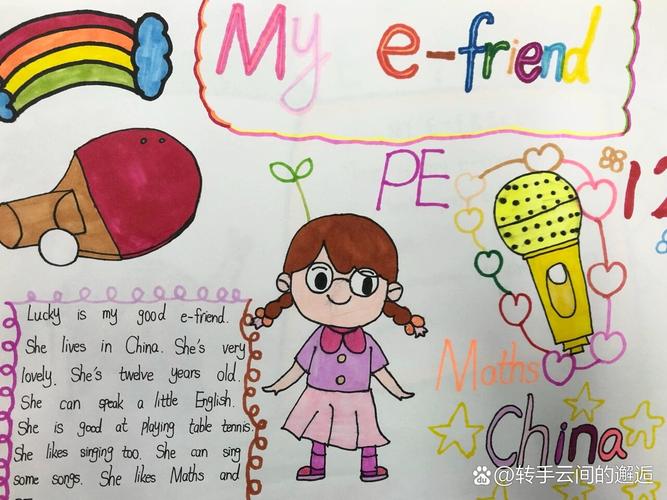 My e-friend
PE
12
Lucky is my good e-friend.
She lives in China. She's very
lovely. She's twelve years old.
She can speak a little English.
She is good at playing table tennis.
She likes singing too. She can sing
some songs. She likes Maths and
Maths
China
@转手云间的邂逅